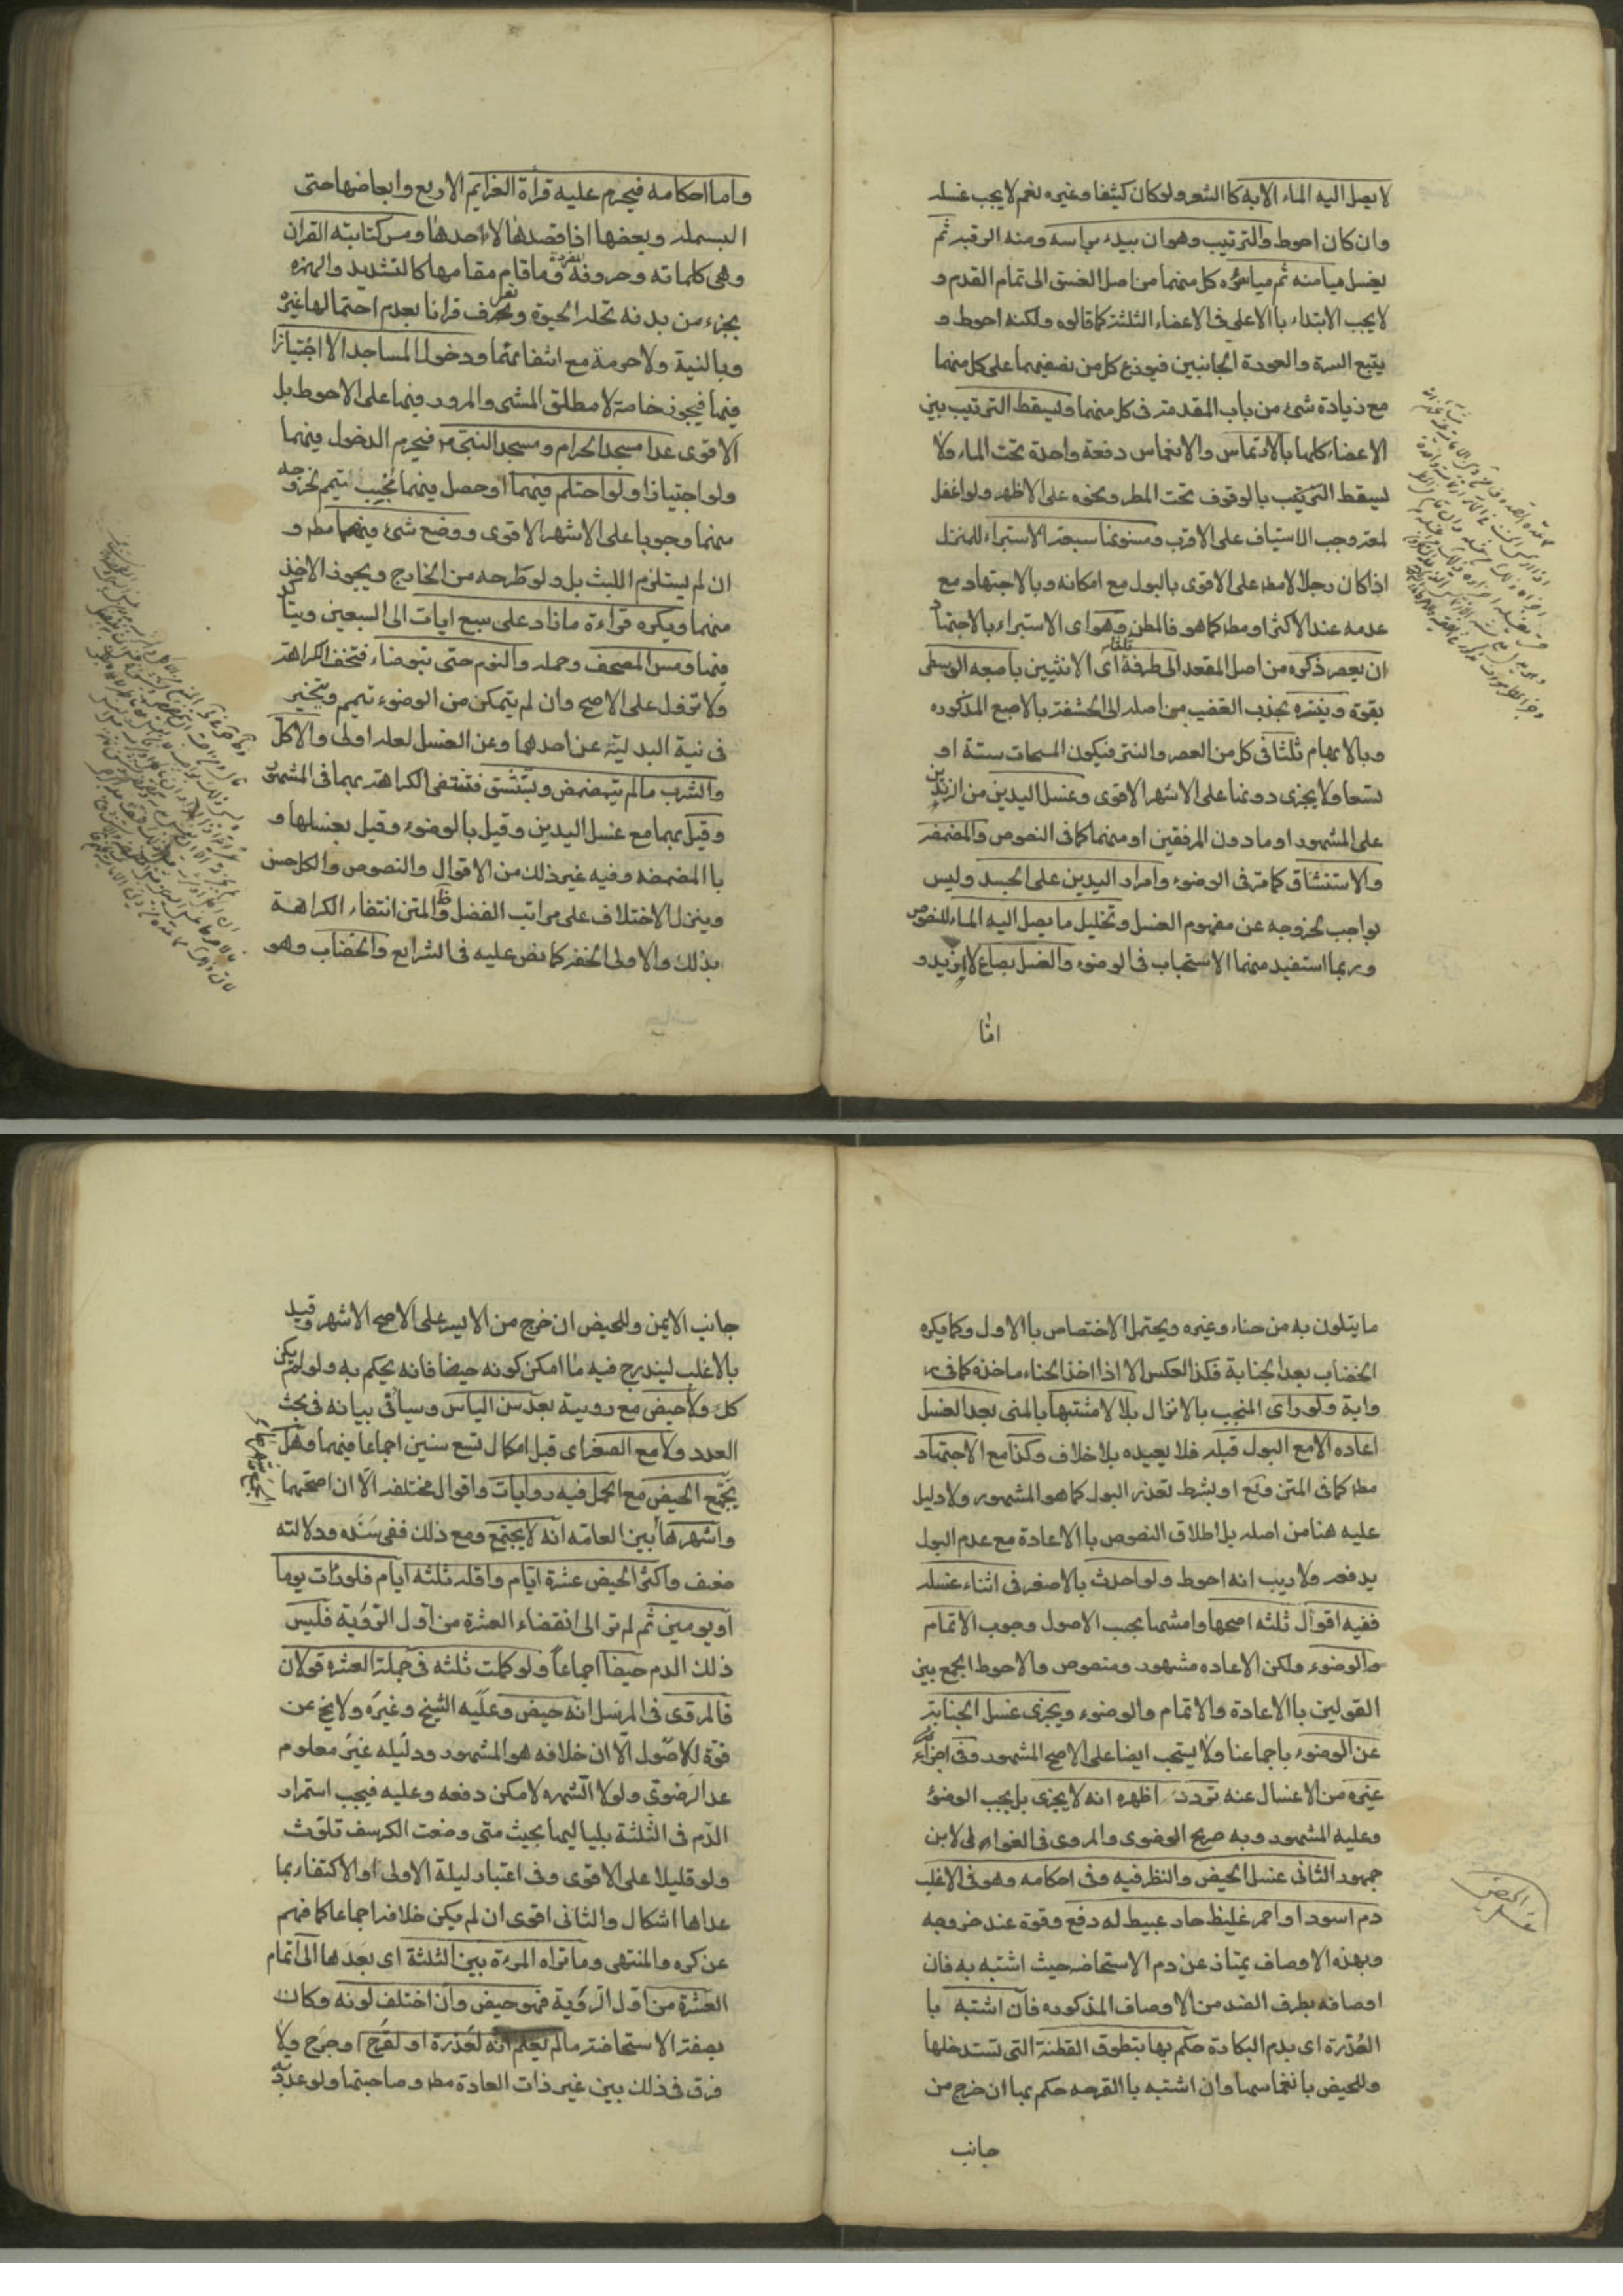 لا يصل اليه الماء الا به كا الشعر ولو كان كثيفا وغيره نعم لا يجب غسله
وان كان احوط والترتيب وهو ان يبدء براسه ومنه الرقبه ثم
يغسل ميامنه ثم مياسره كل منهما من اصل العنق الى تمام القدم و
لا يجب الابتداء با الاعلى فى الاعضاء الثلثة كما قالوه ولكنه احوط و
يتبع السرة والعورة الجانبين فيوزع كل من نصفيهما على كل منهما
مع زيادة شئ من باب المقدمة فى كل منهما ويسقط الترتيب بين
الاعضاء كلها بالارتماس والانغماس دفعة واحدة تحت الماء ولا
يسقط الترتيب بالوقوف تحت المطر ونحوه على الاظهر ولو اغفل
لمعة وجب الاستيناف على الاقرب ومسنوناته سبعة الاستبراء للمنزل
اذا كان رجلا لا مطه على الاقوى بالبول مع امكانه وبا الاجتهاد مع
عدمه عند الاكثر او مطه كما هو فالمطن وهو اى الاستبراء بالاجتهاد
ان يعصر ذكره من اصل المقعد الى طرفه تلقاء اى الانثيين باصبعه الوسطى
بقوة وينتره بجذب القضيب من اصله الى الحشفة بالاصبع المذكوره
وبالابهام ثلثا فى كل من العصر والنتر فيكون المسحات ستة او
تسعا ولا يجزى دونها على الاشهر الاقوى وغسل اليدين من الزندين
على المشهور او ما دون المرفقين او منهما كما فى النصوص والمضمضه
والاستنشاق كما مر فى الوضوء وامرار اليدين على الجسد وليس
بواجب لخروجه عن مفهوم الغسل وتخليل ما يصل اليه الماء للنصوص
وربما استفيد منها الاستحباب فى الوضوء والغسل بصاع لا ازيد و
اما
واما احكامه فيحرم عليه قراة العزايم الاربع وابعاضها حتى
البسمله وبعضها اذا قصدها لاحدها ومس كتابته القران
وهى كلماته وحروفه المفردة وما قام مقامها كا لتشديد والهمزه
بجزء من بدنه تحله الحيوة ويعرف قرانا بعدم احتمالها غيره
وبالنية ولا حرمة مع انتفائهما ودخول المساجد الا اجتيازا
فيها فيجوز خاصة لا مطلق المشى والمرور فيها على الاحوط بل
الاقوى عدا مسجد الحرام ومسجد النبى ص فيحرم الدخول فيهما
ولو اجتيازا ولو احتلم فيهما او حصل فيهما تجنيب التيمم لخروجه
منهما وجوبا على الاشهر الاقوى ووضع شئ فيهما مطه و
ان لم يستلزم اللبث بل ولو طرحه من الخارج ويجوز الاخذ
منهما ويكره قراءة ما زاد على سبع ايات الى السبعين ويتاكد
فيها ومس المصحف وحمله والنوم حتى يتوضاء فتخف الكراهة
ولا تزول على الاصح وان لم يتمكن من الوضوء تيمم ويتخير
فى نية البدلية عن احدهما وعن الغسل لعله اولى والاكل
والشرب ما لم يتمضمض ويستنشق فتنتفى الكراهة بهما فى المشهور
وقيل بهما مع غسل اليدين وقيل بالوضوء وقيل بغسلها و
با المضمضه وفيه غير ذلك من الاقوال والنصوص والكل حسن
وينزل الاختلاف على مراتب الفضل وظ المتن انتفاء الكراهة
بذلك والاولى الخفة كما نص عليه فى الشرايع والخضاب وهو
ما يتلون به من حناء وغيره ويحتمل الاختصاص با الاول وكما يكره
الخضاب بعد الجنابة فكذا العكس الا اذا اخذ الحناء ماخذه كما فى ر
واية ولو راى المنجب بالانزال بللا مشتبها بالمنى بعد الغسل
اعاده الا مع البول قبله فلا يعيده بلا خلاف وكذا مع الاجتهاد
مطه كما فى المتن ويع او بشرط تعذر البول كما هو المشهور ولا دليل
عليه هنا من اصله بل اطلاق النصوص با الاعادة مع عدم البول
يدفعه ولا ريب انه احوط ولو احدث بالاصغر فى اثناء غسله
ففيه اقوال ثلثه اصحها وامشها بحسب الاصول وجوب الاتمام
والوضوء ولكن الاعاده مشهور ومنصوص والاحوط الجمع بين
القولين با الاعادة والاتمام والوضوء ويجزى غسل الجنابة
عن الوضوء باجماعنا ولا يستحب ايضا على الاصح المشهور وفى اجزاء
غيره من الاغسال عنه تردد اظهره انه لا يجزى بل يجب الوضوء
وعليه المشهور وبه صرح الرضوى والمروى فى الغوالى لابن
جمهور الثانى غسل الحيض والنظر فيه وفى احكامه وهو فى الاغلب
دم اسود او احمر غليظ حار عبيط له دفع وقوة عند خروجه
وبهذه الاوصاف يمتاز عن دم الاستحاضه حيث اشتبه به فان
اوصافه بطرف الضد من الاوصاف المذكوره فان اشتبه با
العذرة اى بدم البكارة حكم بها بتطوق القطنة التى تستدخلها
وللحيض بانغماسها وان اشتبه با القرحه حكم بها ان خرج من
جانب
غسل الحيض
جانب الايمن وللحيض ان خرج من الايسر على الاصح الاشهر وقيد
بالاغلب ليندرج فيه ما امكن كونه حيضا فانه يحكم به ولو لم يكن
كك ولا حيض مع روية بعد سن الياس وسياتى بيانه فى بحث
العدد ولا مع الصغر اى قبل اكمال تسع سنين اجماعا فيهما وهل
يجتمع الحيض مع الحمل فيه روايات واقوال مختلفه الا ان اصحها
واشهرها بين العامه انه لا يجتمع ومع ذلك ففى سنده ودلالته
ضعف واكثر الحيض عشرة ايام واقله ثلثه ايام فلو رات يوما
او يومين ثم لم تر الى انقضاء العشرة من اول الرؤية فليس
ذلك الدم حيضا اجماعا ولو كملت ثلثه فى جملة العشره قولان
فالمروى فى المرسل انه حيض وعليه الشيخ وغيره ولا يخ عن
قوة للاصول الا ان خلافه هو المشهور ودليله غير معلوم
عدا الرضوى ولولا الشهره لامكن دفعه وعليه فيجب استمرار
الدم فى الثلثة بلياليها بحيث متى وضعت الكرسف تلوث
ولو قليلا على الاقوى وفى اعتبار ليلة الاولى او الاكتفاء بما
عداها اشكال والثانى اقوى ان لم يكن خلافه اجماعا كما فهم
عن كره والمنتهى وما تراه المرءة بين الثلثة اى بعدها الى اتمام
العشرة من اول الرؤية فهو حيض وان اختلف لونه وكان
بصفة الاستحاضة ما لم يعلم انه لعذرة او لقرح او جرح ولا
فرق فى ذلك بين غير ذات العادة مطه وصاحبتها ولو عددية